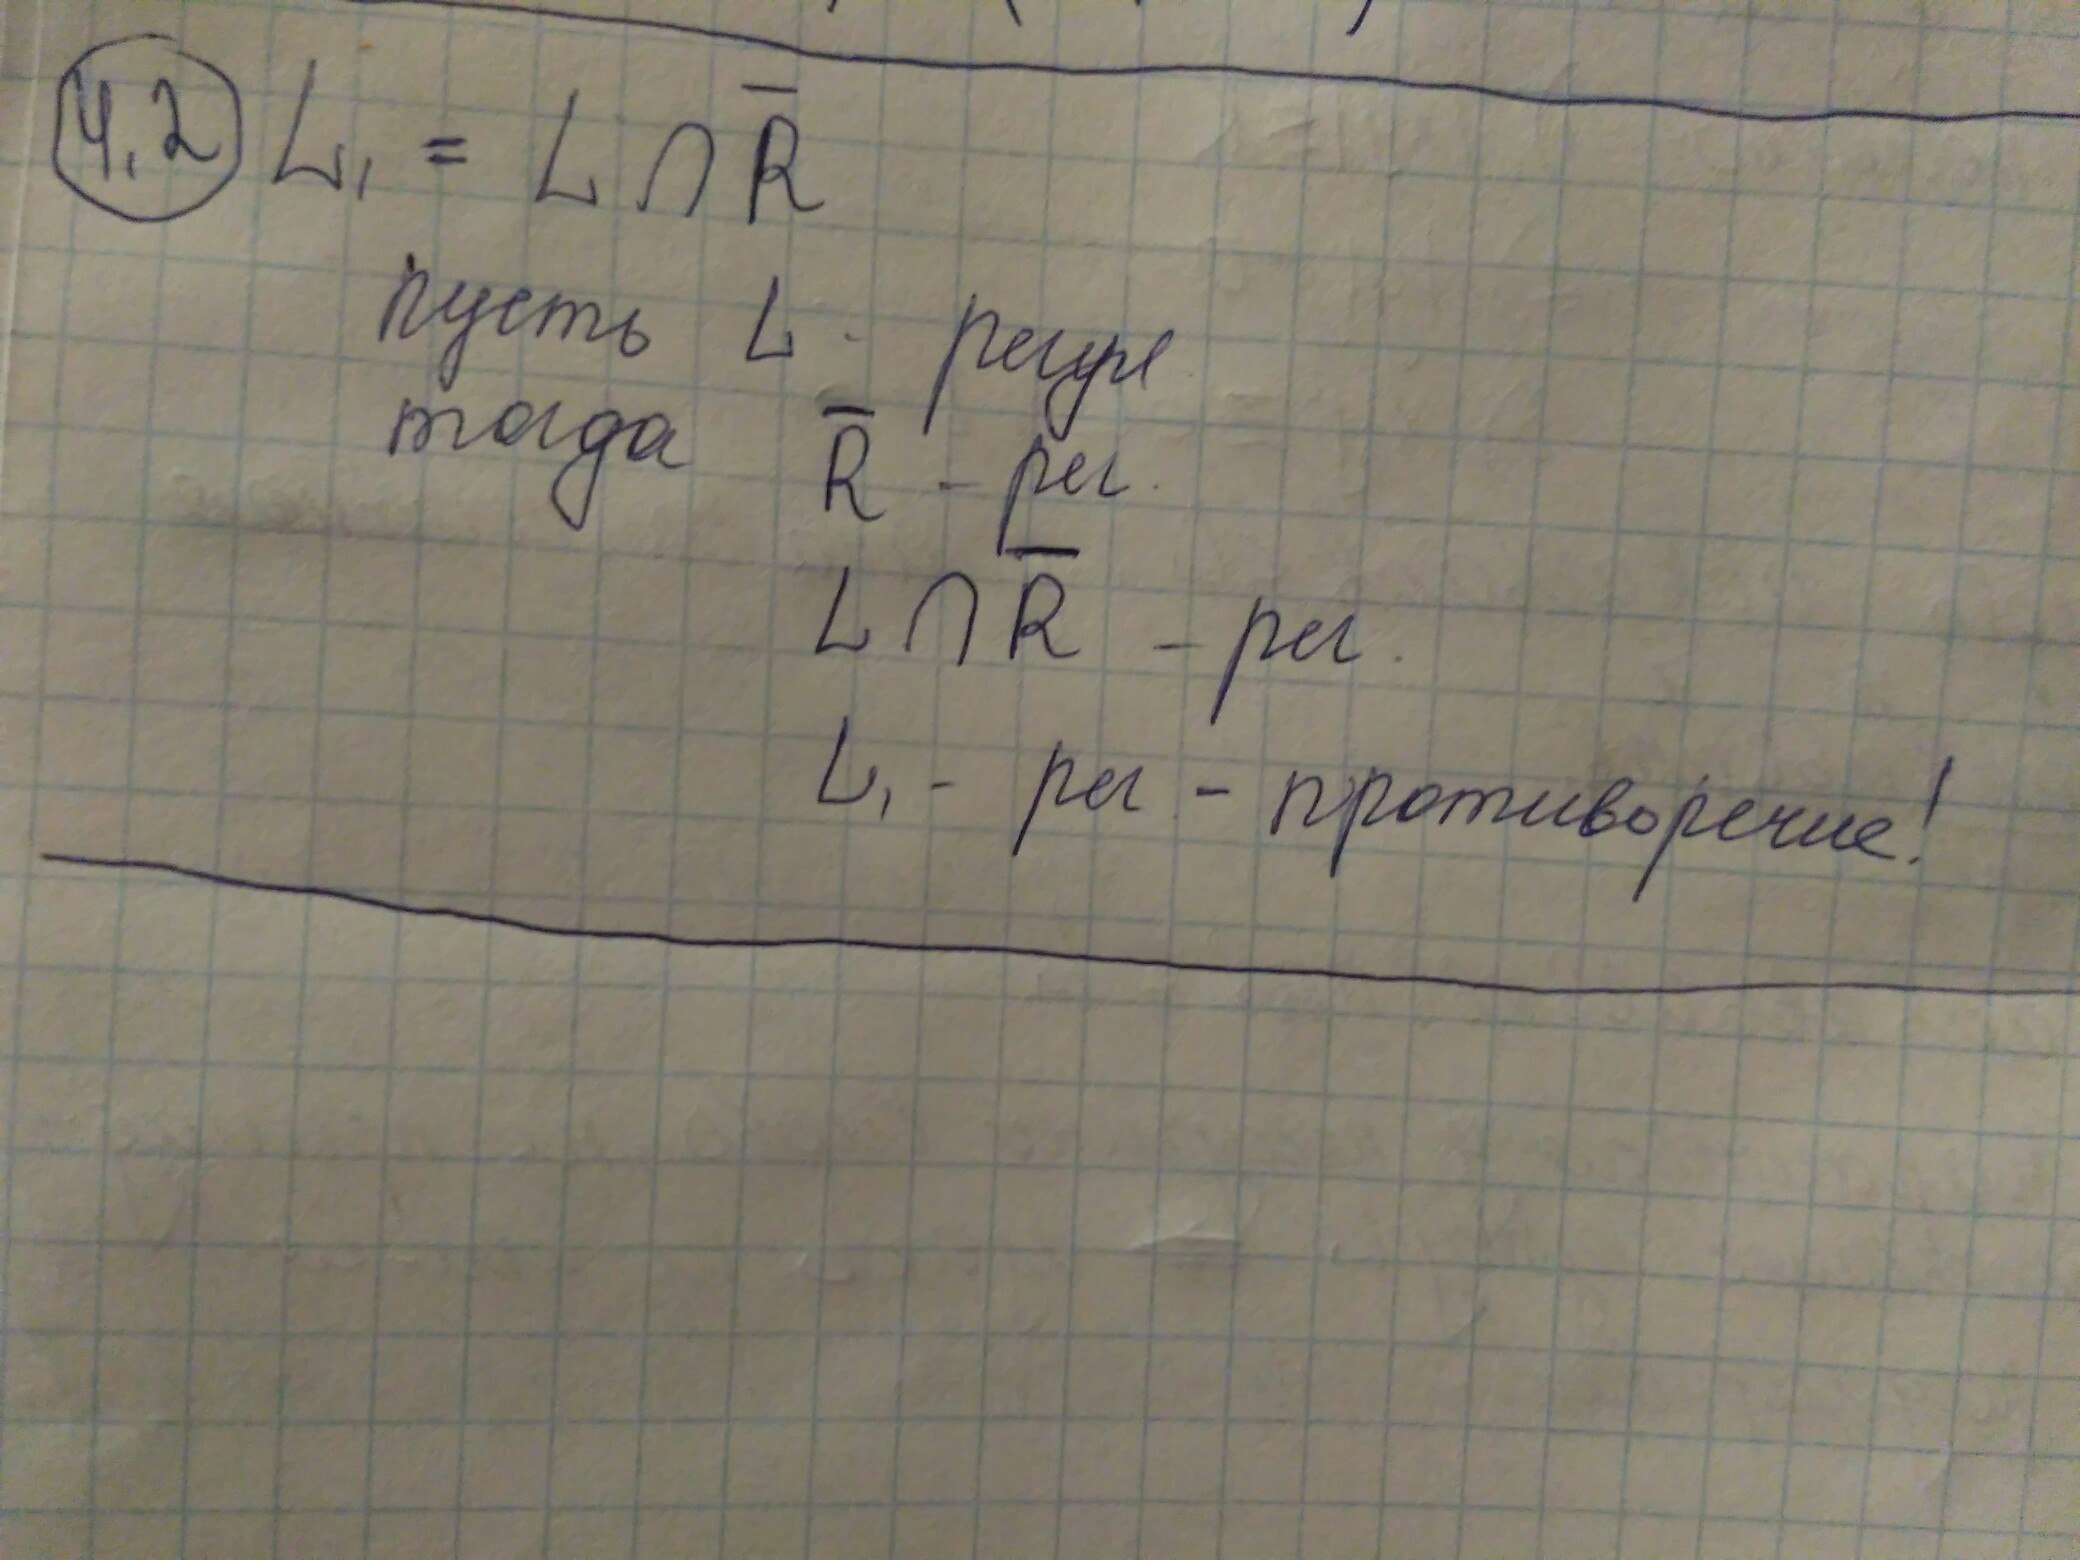 4.2 L₁ = L ∩ R̅
пусть L - регул
тогда R̅ - рег.
L ∩ R̅ - рег.
L₁ - рег - противоречие!